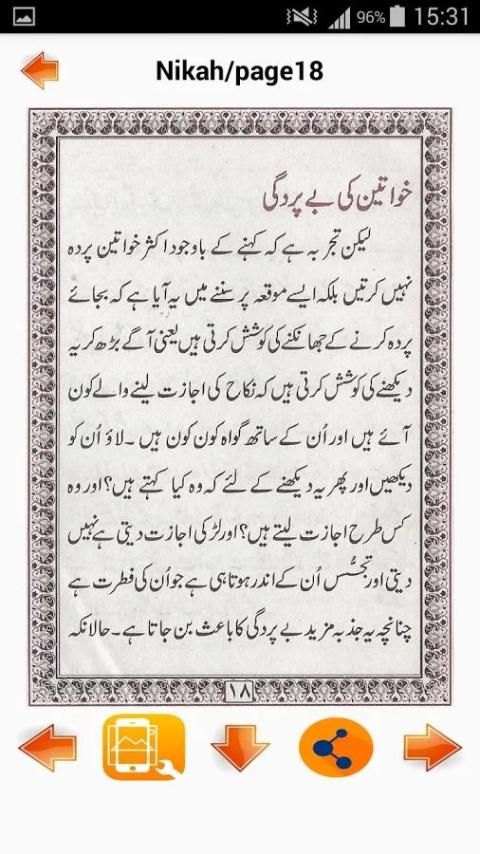 96% 15:31
Nikah/page18
خواتین کی بے پردگی
لیکن تجربہ ہے کہ کہنے کے باوجود اکثر خواتین پردہ
نہیں کرتیں بلکہ ایسے موقعہ پر سننے میں یہ آیا ہے کہ بجائے
پردہ کرنے کے جھانکنے کی کوشش کرتی ہیں یعنی آگے بڑھ کر یہ
دیکھنے کی کوشش کرتی ہیں کہ نکاح کی اجازت لینے والے کون
آئے ہیں اور اُن کے ساتھ گواہ کون کون ہیں ۔ لاؤ اُن کو
دیکھیں اور پھر یہ دیکھنے کے لئے کہ وہ کیا کہتے ہیں؟ اور وہ
کس طرح اجازت لیتے ہیں؟ اور لڑکی اجازت دیتی ہے نہیں
دیتی اور تجسُّس اُن کے اندر ہوتا ہی ہے جو اُن کی فطرت ہے
چنانچہ یہ جذبہ مزید بے پردگی کا باعث بن جاتا ہے۔ حالانکہ
۱۸